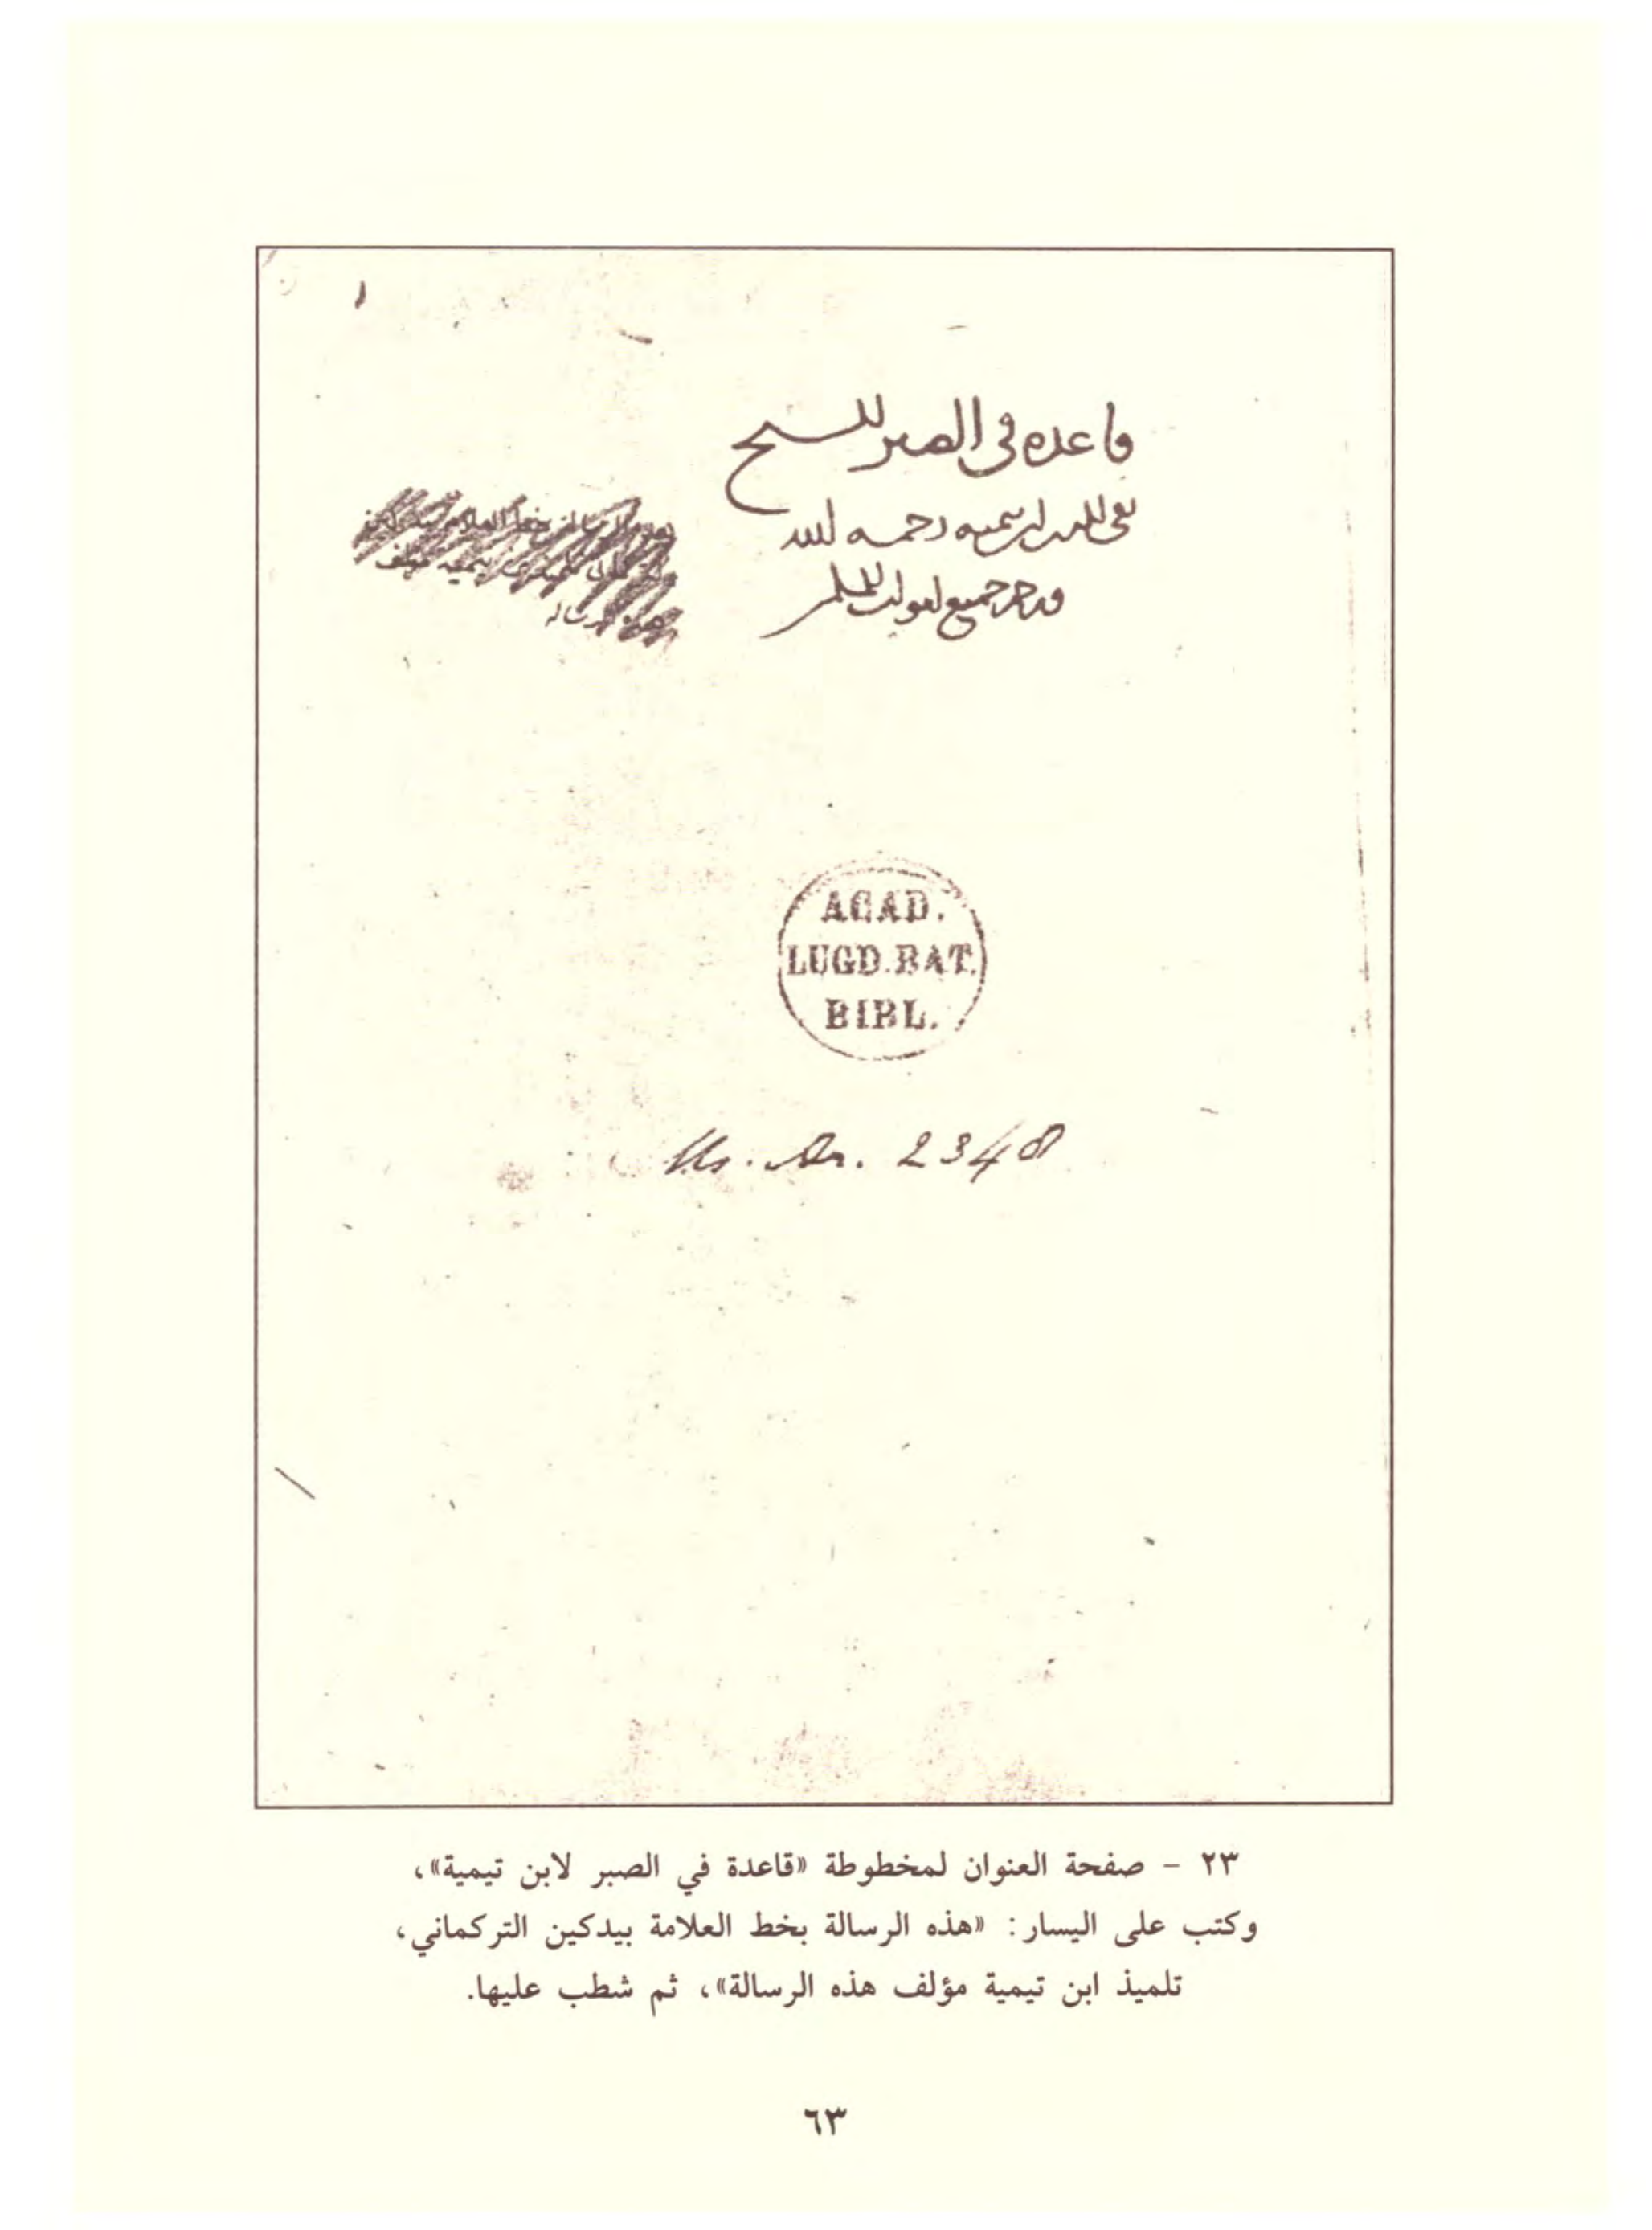 ١
قاعده في الصبر للشيخ
تقي الدين ابن تيميه رحمه الله
جميع
هذه الرسالة بخط العلامة
تيميه مؤلف
هذه الرسالة
ACAD.
LUGD. BAT.
BIBL.
Ms. Ar. 2348
٢٣ - صفحة العنوان لمخطوطة «قاعدة في الصبر لابن تيمية»،
وكتب على اليسار: «هذه الرسالة بخط العلامة بيدكين التركماني،
تلميذ ابن تيمية مؤلف هذه الرسالة»، ثم شطب عليها.
٦٣